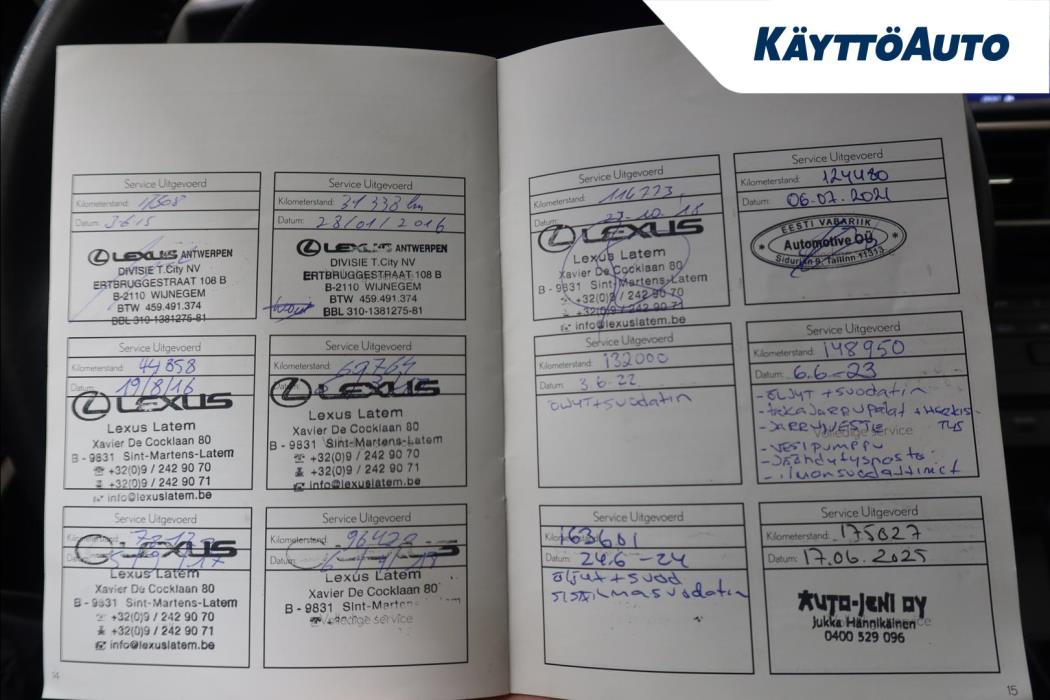 KÄYTTÖAUTO
Service Uitgevoerd
Kilometerstand:
Datum: 3-6-15
LEXUS ANTWERPEN
DIVISIE T.City NV
ERTBRUGGESTRAAT 108 B
B-2110 WIJNEGEM
BTW 459.491.374
BBL 310-1381275-81
Service Uitgevoerd
Kilometerstand: 31 338 km
Datum: 28/01/2016
LEXUS ANTWERPEN
DIVISIE T.City NV
ERTBRUGGESTRAAT 108 B
B-2110 WIJNEGEM
BTW 459.491.374
BBL 310-1381275-81
Service Uitgevoerd
Kilometerstand: 44858
Datum: 19/8/16
LEXUS
Lexus Latem
Xavier De Cocklaan 80
B - 9831 Sint-Martens-Latem
+32(0)9 / 242 90 70
+32(0)9 / 242 90 71
info@lexuslatem.be
Service Uitgevoerd
Kilometerstand: 69764
LEXUS
Lexus Latem
Xavier De Cocklaan 80
B - 9831 Sint-Martens-Latem
+32(0)9 / 242 90 70
+32(0)9 / 242 90 71
info@lexuslatem.be
Service Uitgevoerd
LEXUS
Lexus Latem
Xavier De Cocklaan 80
B - 9831 Sint-Martens-Latem
+32(0)9 / 242 90 70
+32(0)9 / 242 90 71
info@lexuslatem.be
Service Uitgevoerd
Kilometerstand:
Datum:
Lexus Latem
Xavier De Cocklaan 80
B - 9831 Sint-Martens-
Volledige service
14
Service Uitgevoerd
Kilometerstand: 116773
Datum: 23-10-18
LEXUS
Lexus Latem
Xavier De Cocklaan 80
B - 9831 Sint-Martens-Latem
+32(0)9 / 242 90 70
+32(0)9 / 242 90 71
info@lexuslatem.be
Service Uitgevoerd
Kilometerstand: 124480
Datum: 06.07.2021
EESTI VABARIIK
Automotive OÜ
Tallinn 11313
Service Uitgevoerd
Kilometerstand: 132000
Datum: 3.6.22
öljyt+suodatin
Service Uitgevoerd
Kilometerstand: 148950
Datum: 6.6-23
- ÖLJYT + suodatin
- takaJarrupalat + Herkis-
- JARRUNESTE TYS
Volledige service
- VESIPUMPPU
- Jäähdytysneste
- ilmansuodattimet
Service Uitgevoerd
163601
Datum: 24.6-24
öljyt + suod
sisäilmasuodatin
Service Uitgevoerd
Kilometerstand: 175827
Datum: 17.06.2025
AUTO-JENI OY
Jukka Hännikäinen
0400 529 096
15